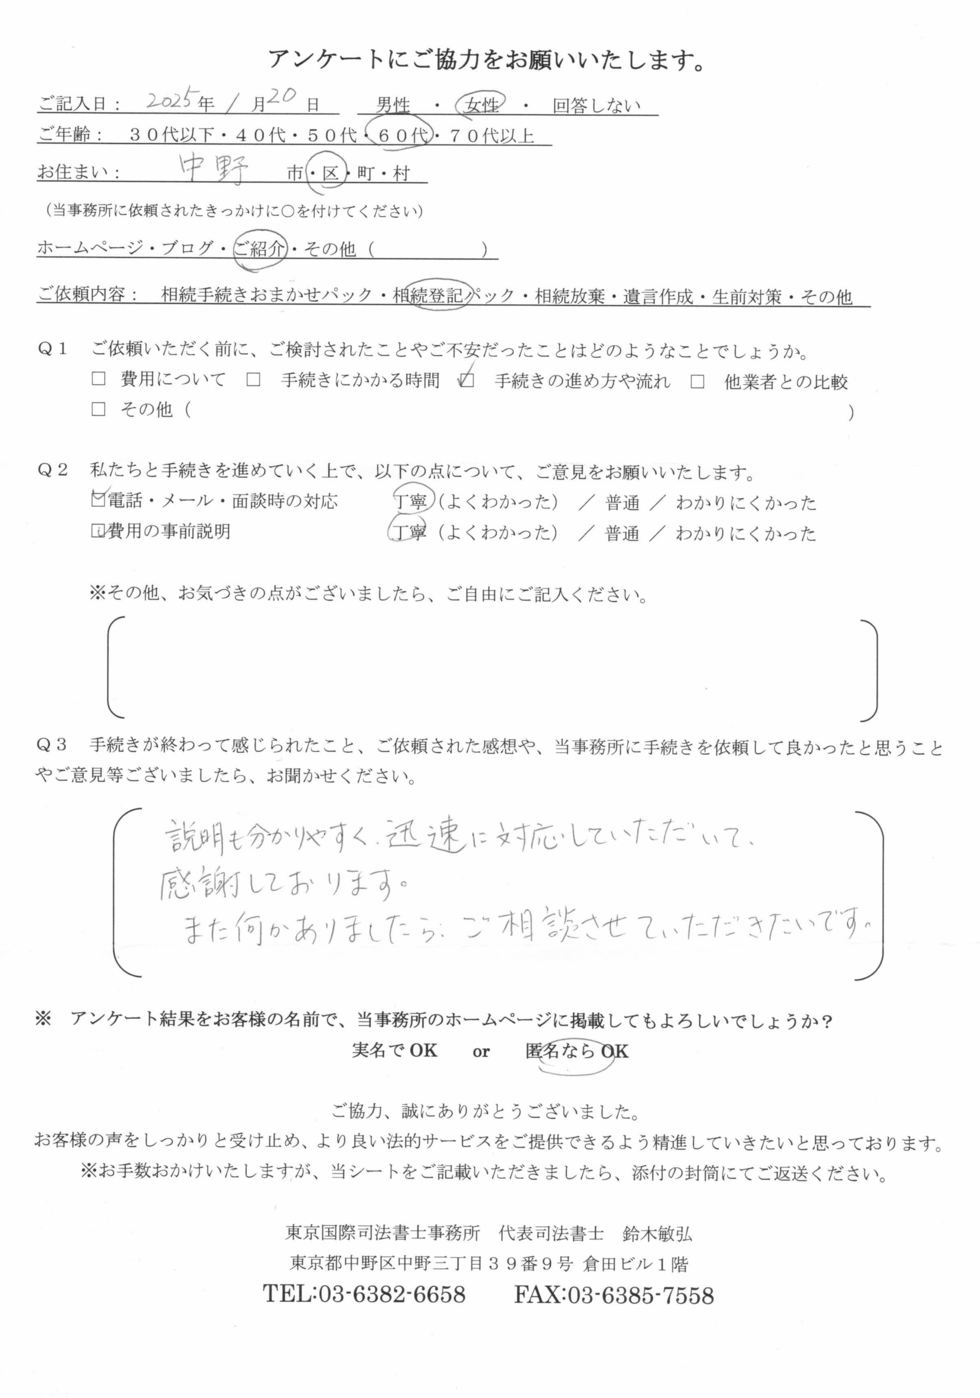 アンケートにご協力をお願いいたします。
ご記入日： 2025年 1月20日　男性 ・ 女性 ・ 回答しない
ご年齢： 30代以下・40代・50代・60代・70代以上
お住まい： 中野 市・区・町・村
（当事務所に依頼されたきっかけに○を付けてください）
ホームページ・ブログ・ご紹介・その他（　　　　　　）
ご依頼内容： 相続手続きおまかせパック・相続登記パック・相続放棄・遺言作成・生前対策・その他
Q1　ご依頼いただく前に、ご検討されたことやご不安だったことはどのようなことでしょうか。
□ 費用について □ 手続きにかかる時間 ☑ 手続きの進め方や流れ □ 他業者との比較
□ その他（　　　　　　）
Q2　私たちと手続きを進めていく上で、以下の点について、ご意見をお願いいたします。
☑電話・メール・面談時の対応　丁寧（よくわかった） ／ 普通 ／ わかりにくかった
☑費用の事前説明　丁寧（よくわかった） ／ 普通 ／ わかりにくかった
※その他、お気づきの点がございましたら、ご自由にご記入ください。
Q3　手続きが終わって感じられたこと、ご依頼された感想や、当事務所に手続きを依頼して良かったと思うこと
やご意見等ございましたら、お聞かせください。
説明も分かりやすく、迅速に対応していただいて、
感謝しております。
また何かありましたら、ご相談させていただきたいです。
※　アンケート結果をお客様の名前で、当事務所のホームページに掲載してもよろしいでしょうか？
実名でOK　or　匿名ならOK
ご協力、誠にありがとうございました。
お客様の声をしっかりと受け止め、より良い法的サービスをご提供できるよう精進していきたいと思っております。
※お手数おかけいたしますが、当シートをご記載いただきましたら、添付の封筒にてご返送ください。
東京国際司法書士事務所　代表司法書士　鈴木敏弘
東京都中野区中野三丁目39番9号 倉田ビル1階
TEL:03-6382-6658　FAX:03-6385-7558